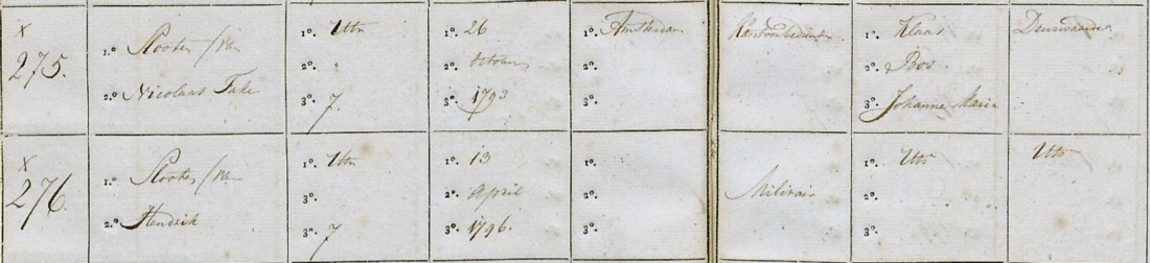 X
275.
1.º Slooten /van
2.º Nicolaas Take
1º. Utr
2º.
3º. 7.
1º. 26
2º. October
3º. 1793
1º. Amsterdam
2º.
3º.
Kantoorbediende
1º. Klaas
2º. Bos
3º. Johanna Maria
Deurwaarder
X
276.
1.º Slooten /van
2.º Hendrik
1º. Utr
3º.
3º. 7
1º. 13
2º. April
3º. 1796.
1º.
2º.
3º.
Militair
1º. Utr
2º.
3º.
Utr